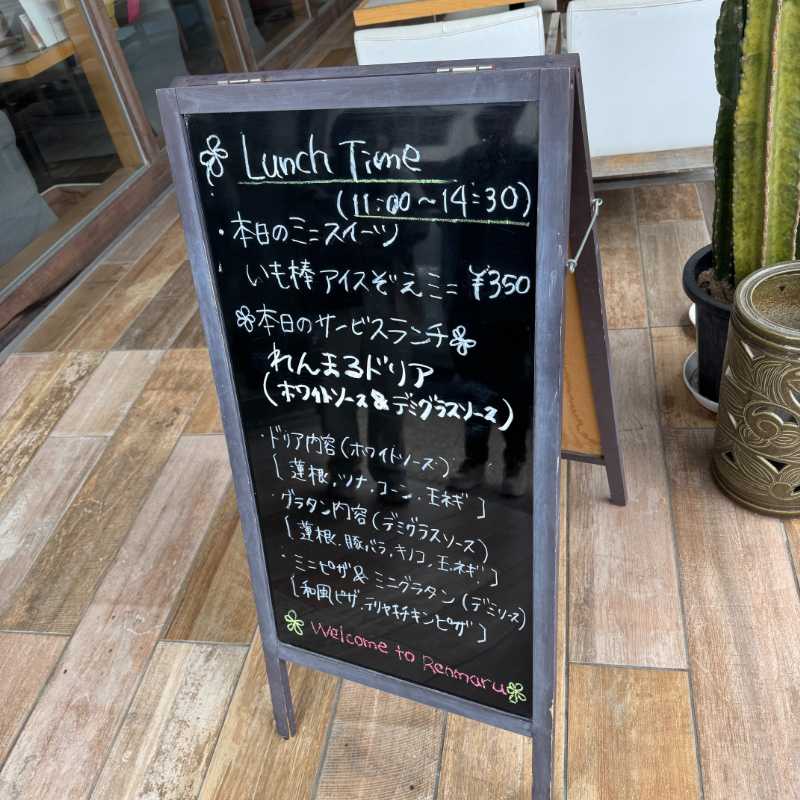 Lunch Time
(11:00〜14:30)
・本日のミニスイーツ
いも棒アイスぞえミニ ¥350
本日のサービスランチ
れんまるドリア
(ホワイトソース&デミグラスソース)
・ドリア内容(ホワイトソース)
[蓮根,ツナ,コーン,玉ネギ]
・グラタン内容(デミグラスソース)
[蓮根,豚バラ,キノコ,玉ネギ]
・ミニピザ&ミニグラタン(デミソース)
[和風ピザ,テリヤキチキンピザ]
Welcome to Renmaru